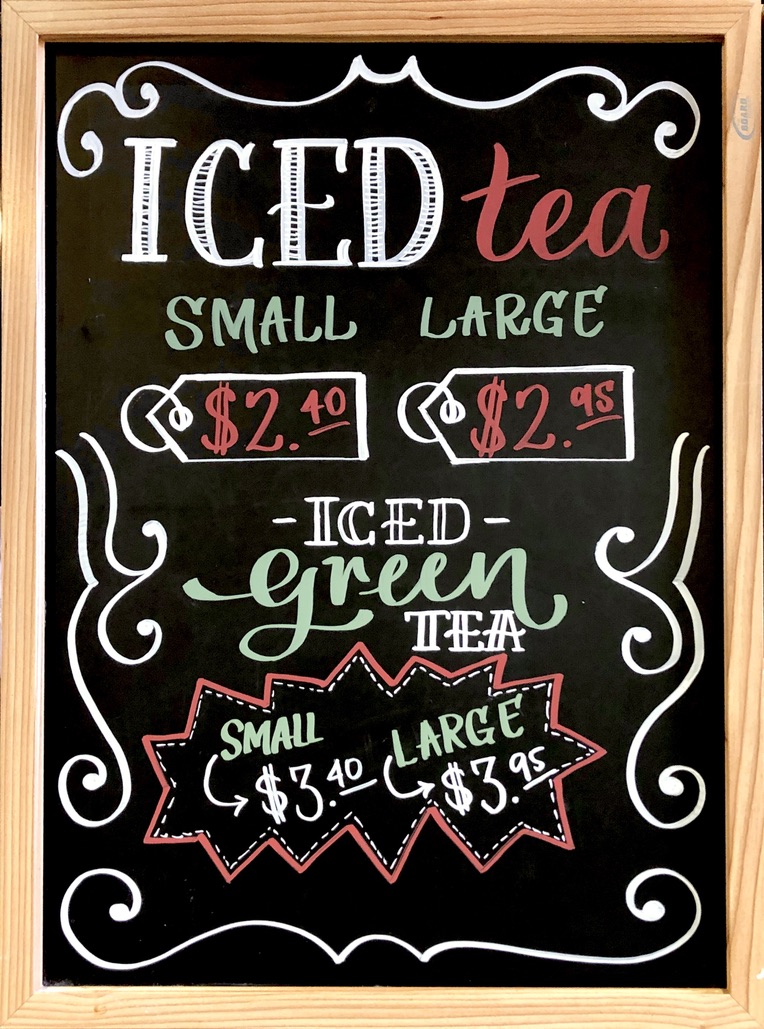 ICED tea
SMALL LARGE
$2.40 $2.95
-ICED-
green
TEA
SMALL LARGE
$3.40 $3.95
BOARD